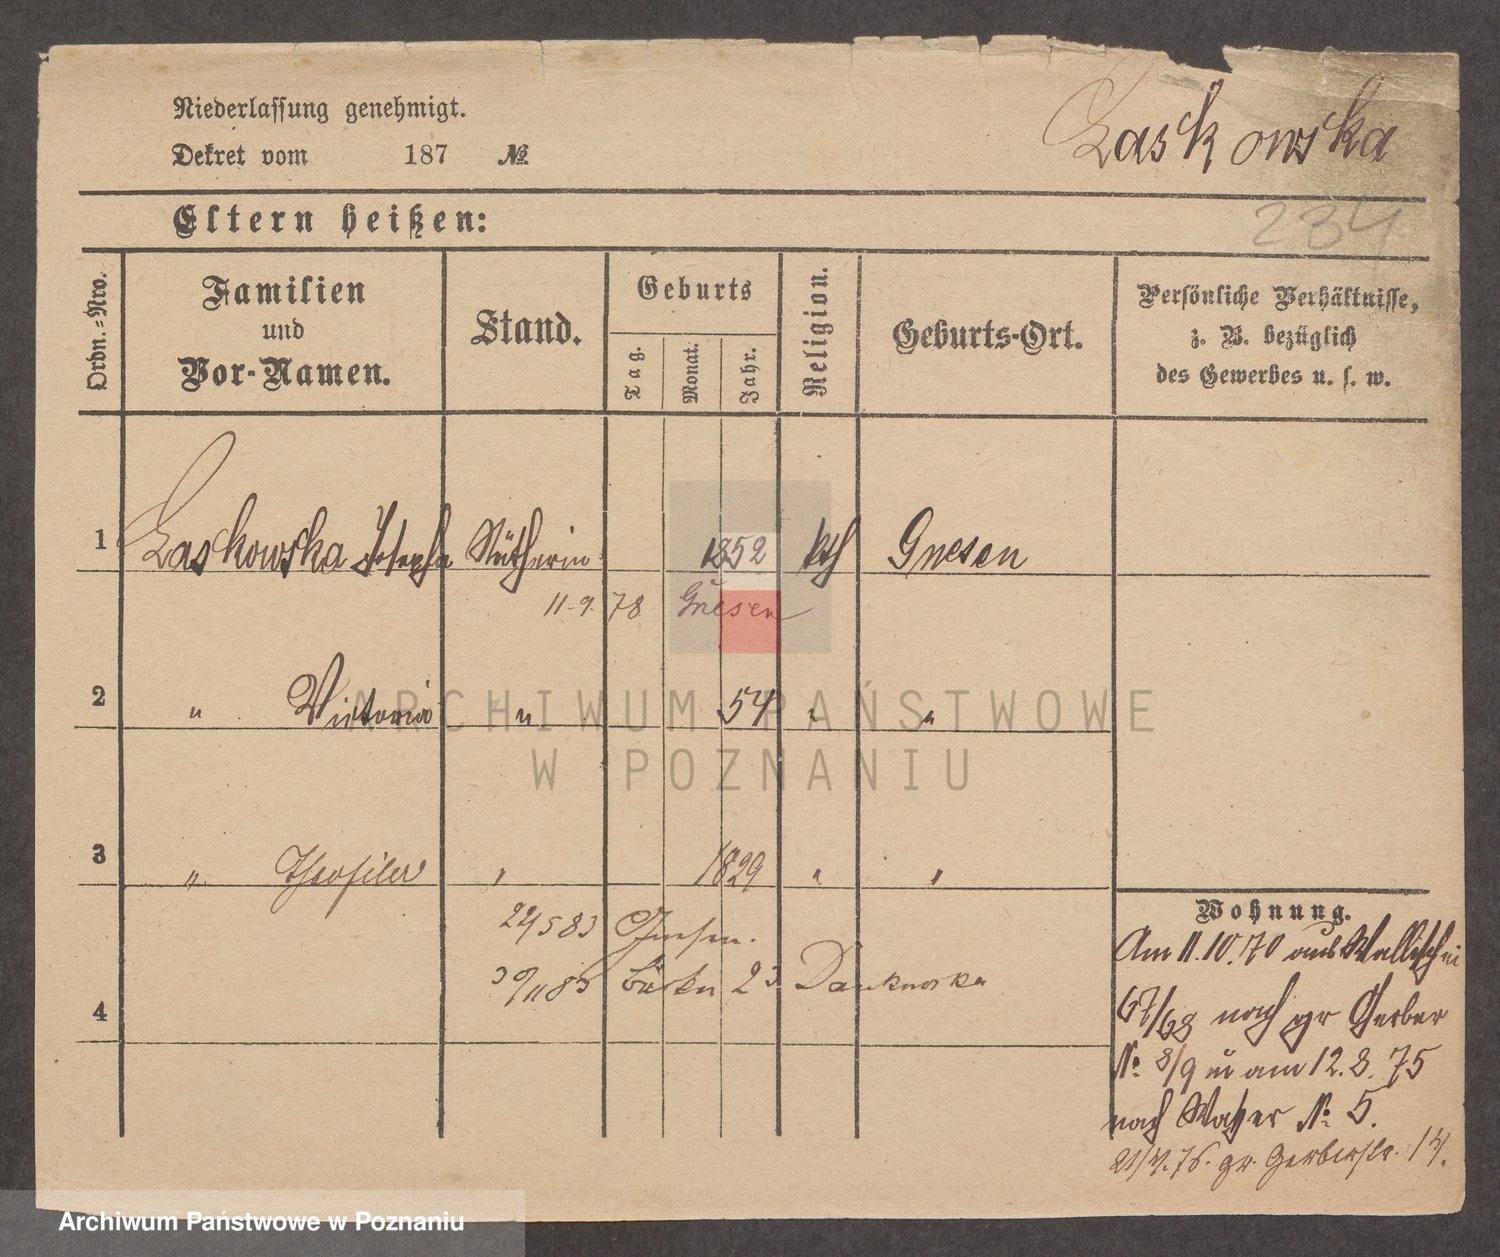 Niederlassung genehmigt.
Dekret vom 187 №
Laskowska
234
Eltern heißen:
Ordn.=Nro.
Familien
und
Vor-Namen.
Stand.
Geburts
Tag.
Monat.
Jahr.
Religion.
Geburts-Ort.
Persönliche Verhältnisse,
z. B. bezüglich
des Gewerbes u. s. w.
1 Laskowska Josepha Nätherin 1852 kth Gnesen
11.9.78 Gnesen
2 " Victoria " 54 " "
ARCHIWUM PAŃSTWOWE
W POZNANIU
3 " Theofila " 1829 " "
Wohnung.
Gnesen.
4
Am 11.10.70 aus Wallischei
67/68 nach gr Gerber
№ 8/9 u am 12.8.75
nach Wasser № 5.
76. gr. Gerberstr. 14.
Archiwum Państwowe w Poznaniu